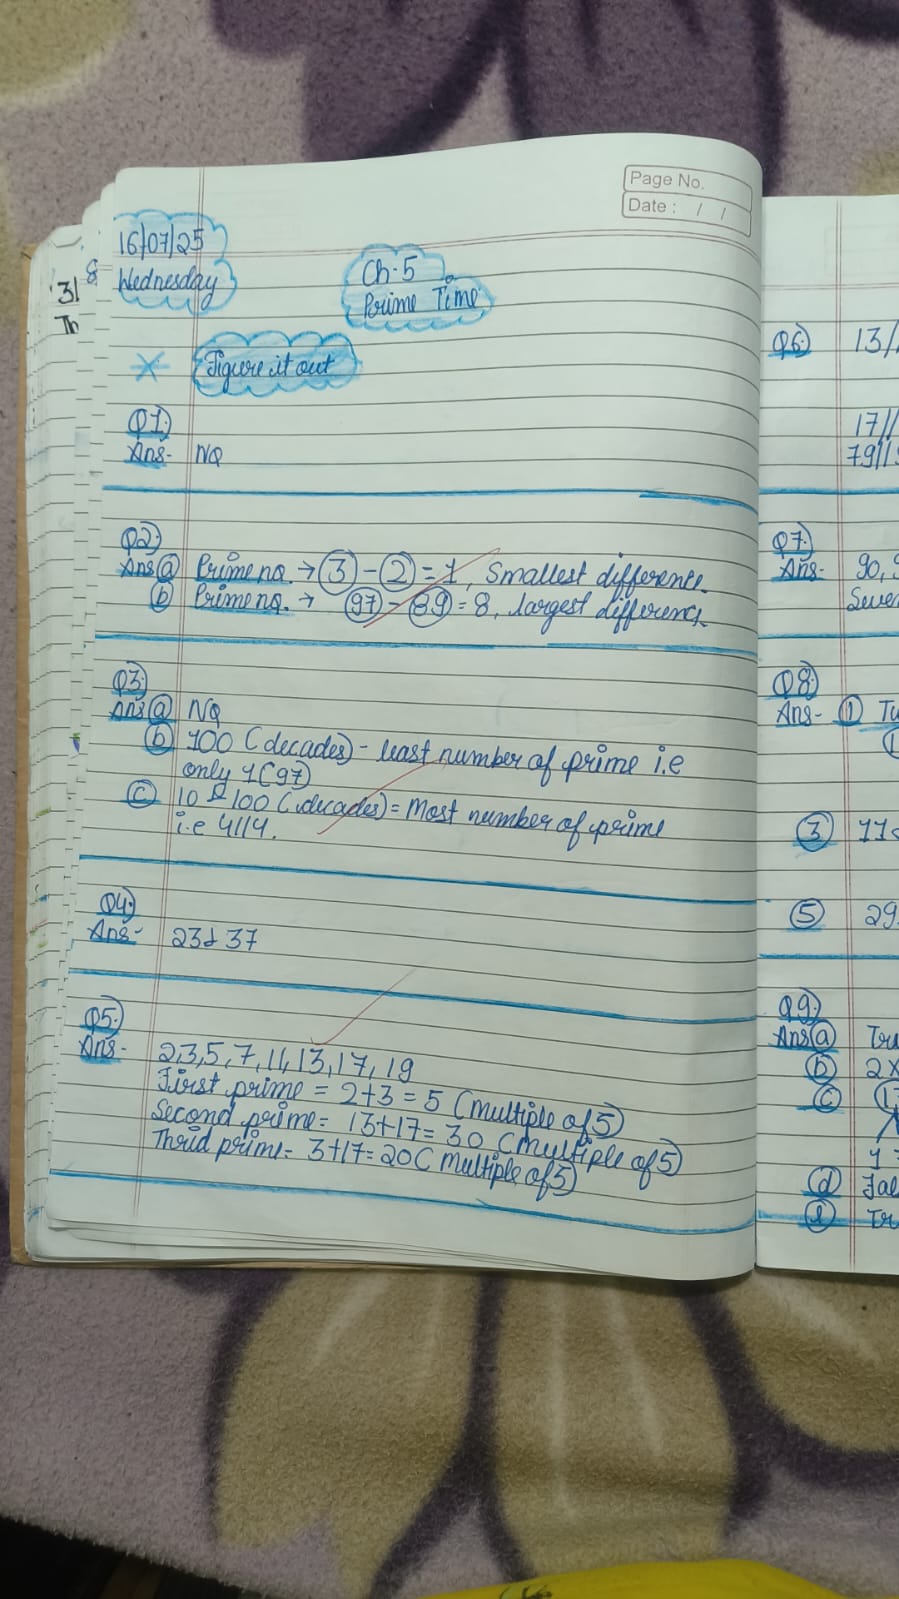 Page No.
Date : / /
16/07/25
Wednesday
Ch-5
Prime Time
Figure it out
Q1)
Ans- No
Q2)
Ans(a) Prime no. → 3 - 2 = 1, Smallest difference.
(b) Prime no. → 97 - 89 = 8, largest difference.
Q3)
Ans(a) No
(b) 100 (decades) - least number of prime i.e
only 1(97)
(c) 10 & 100 (decades) = Most number of prime
i.e 4114.
Q4)
Ans- 23 & 37
Q5)
Ans- 2,3,5,7,11,13,17,19
First prime = 2+3 = 5 (multiple of 5)
Second prime = 13+17 = 30 (multiple of 5)
Thrid prime = 3+17 = 20( multiple of 5)
8
31
Th
Q6) 13/
17//
79//
Q7)
Ans- 90,
Seve
Q8)
Ans- (1)
(3)
(5) 29
Q9)
Ans(a) Tru
(b) 2x
(c)
(d) Fal
(e) Tr